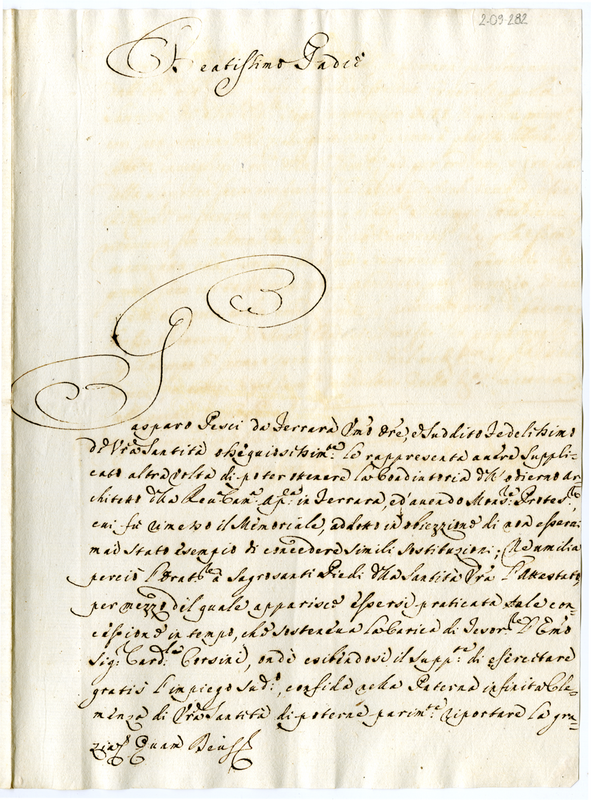 2-09-282
Beatissimo Padre
Gasparo Pesci da Ferrara Umo Ore, e Suddito Fedelissimo
di Vra Santità ossequiosissimte le rappresenta avere Suppli=
cato altra volta di poter ottenere la Coadiutoria dell'odierno Ar=
chiteto della Revda Camra Apca in Ferrara, ed avendo Monsre
cui fù rimesso il Memoriale, addotto in obiezzione di non esservi
mai stato esempio di concedere simili sostituzioni; Ne umilia
perciò l'Oratre à Sagrosanti Piedi della Santità Vra l'Attestato,
per mezzo del quale apparisce essersi praticata tale con=
cessione in tempo, che sosteneva la Carica di Tesorre l'Emo
Sigr Cardle Corsini, onde esibindosi il Suppte di esercitare
gratis l'impiego Sudo, confida nella Paterna infinita Cle=
menza di Vra Santità di poterne parimte riportare la gra=
zia. Quam Deus